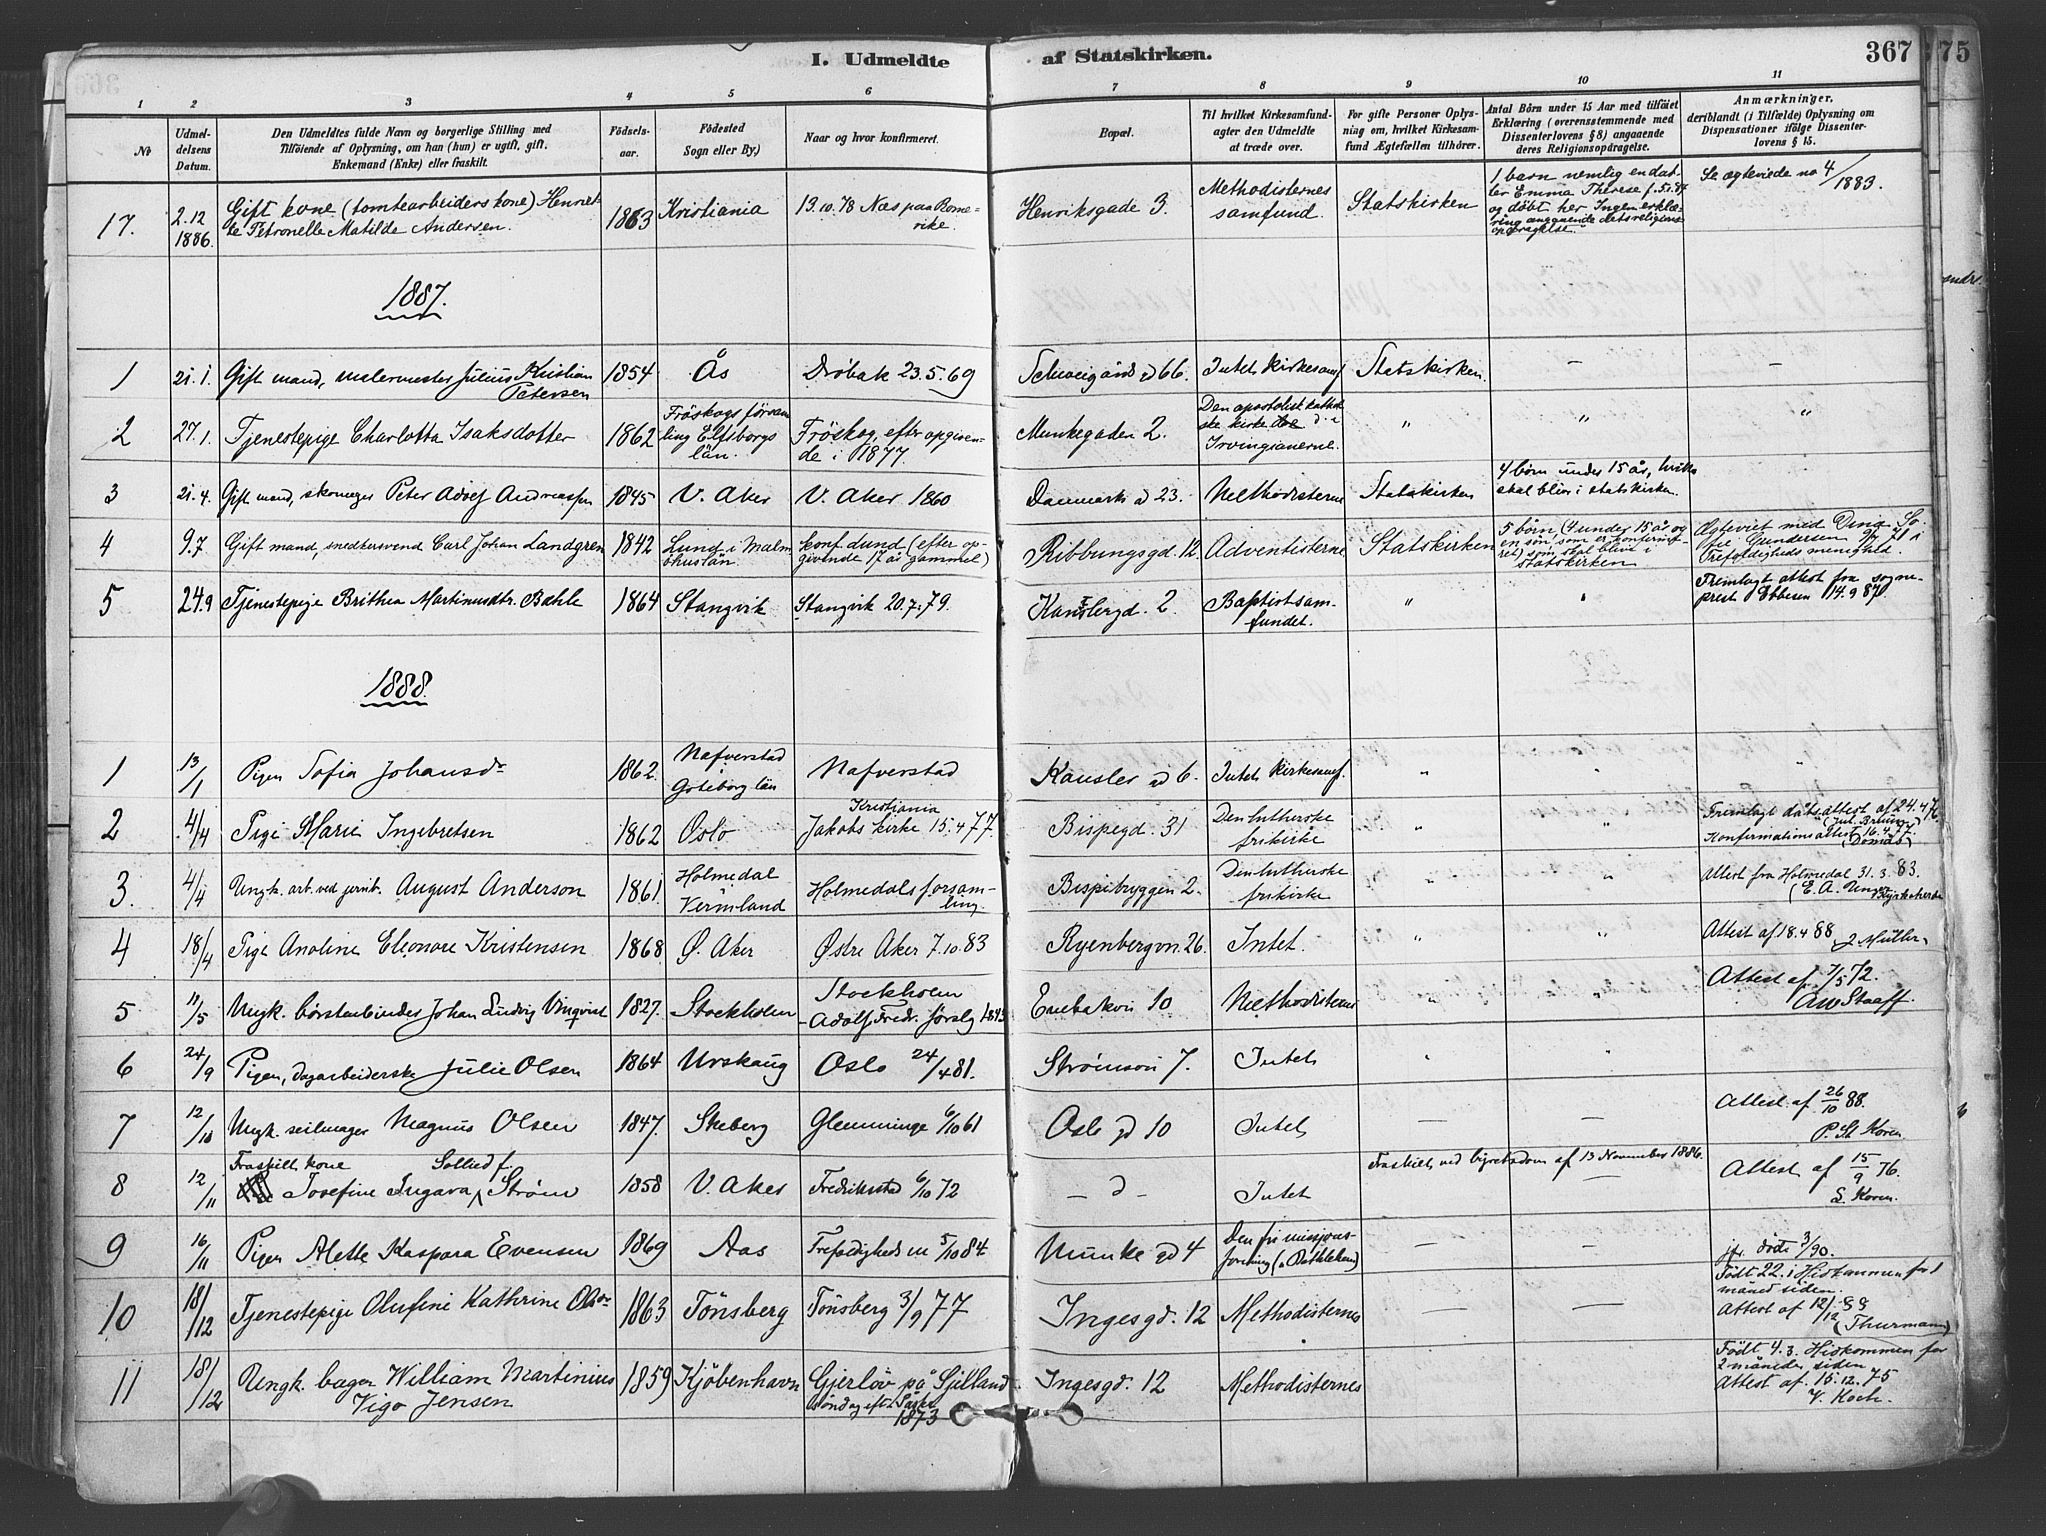 I. Udmeldte af Statskirken. 367 75
1 2 3 4 5 6 7 8 9 10 11
No
Udmel-
delsens
Datum.
Den Udmeldtes fulde Navn og borgerlige Stilling med
Tilföiende af Oplysning, om han (hun) er ugift, gift,
Enkemand (Enke) eller fraskilt.
Födsels-
aar.
Födested
Sogn eller By.)
Naar og hvor konfirmeret.
Bopæl.
Til hvilket Kirkesamfund
agter den Udmeldte
at træde over.
For gifte Personer Oplys-
ning om, hvilket Kirkesam-
fund Ægtefællen tilhörer.
Antal Börn under 15 Aar med tilföiet
Erklæring (overensstemmende med
Dissenterlovens § 8) angaaende
deres Religionsopdragelse.
Anmærkninger,
deriblandt (i Tilfælde) Oplysning om
Dispensationer ifölge Dissenter-
lovens § 15.
17.
2.12
1886.
Gift kone (tomtearbeiders kone) Henriet-
te Petronelle Matilde Andersen.
1863
Kristiania
13.10.78 Næs paa Rome-
rike.
Henriksgade 3.
Methodisternes
samfund.
Statskirken
1 barn nemlig en dat-
ter Emma Therese f. 5.1.84
og döbt her. Ingen erklæ-
ring angaaende dets religiøse
opdragelse.
Se ægteviede no 4/1883.
1887.
1 21.1. Gift mand, malermester Julius Kristian
Petersen
1854 Ås Dröbak 23.5.69 Schweigårds gd 66. Intet kirkesamf. Statskirken. — —
2 27.1. Tjenestepige Charlotta Isaksdotter 1862
Fröskogs försam
ling Elfsborgs
län.
Fröskog, efter opgiven-
de i 1877.
Munkegaden 2.
Den apostolisk kathol
ske kirke d. i
Irvingianerne.
" " "
3 21.4. Gift mand, skomager Peter Adolf Andreassen 1845 V. Aker V. Aker 1860 Danmarks gd 23. Methodisterne Statskirken
4 börn under 15 år, hvilke
skal blive i statskirken.
4 9.7. Gift mand, snedkersvend Carl Johan Landgren 1842
Lund i Malm
öhuslän
konf. Lund (efter op-
givende 17 år gammel)
Ribbungsgd. 12 Adventisterne Statskirken
5 börn (4 under 15 år og
en sön, som er konfirme-
ret) som skal blive i
statskirken
Ægteviet med Dina So-
fie Gundersen 9/4 71 i
Trefoldigheds menighed.
5 24.9 Tjenestepige Brithea Martinusdtr. Bæhle 1864 Stangvik Stangvik 20.7.79. Kanslergd. 2.
Baptistsam-
fundet.
" "
Fremlagt attest fra sogne-
prest Ebbesen 14.9.87.
1888.
1 13/1 Pigen Sofia Johansdr 1862.
Nafverstad
Göteborg län
Nafverstad Kansler gd 6. Intet kirkesamf. " " "
2 4/4 Pige Marie Ingebretsen 1862 Oslo
Kristiania
Jakobs kirke 15.4.77.
Bispegd. 31
Den lutherske
frikirke
" "
Fremlagt dåbsattest af 24.4.76.
(Jul. Bruun)
Konfirmationsattest 16.4.77.
(Domås)
3. 4/4 Ungk. arb. ved jernb. August Anderson 1861.
Holmedal
Vermland
Holmedals forsam-
ling.
Bispebryggen 2.
Den lutherske
frikirke
" "
Attest fra Holmedal 31.3.83.
(E. A. Unger
Kyrkoherde
4 18/4 Pige Anoline Eleonore Kristensen 1868. Ø. Aker Østre Aker 7.10.83 Ryenbergvn. 26. Intet. " " Attest af 18.4.88 J Müller.
5 11/5 Ungk. börstenbinder Johan Ludvig Vinqvist 1827. Stockholm
Stockholm
Adolf Fredr. förslg 1843
Enebakvei 10 Methodisterne " "
Attest af 7/5 72.
AW Staaff.
6 24/9 Pigen, dagarbeiderske Julie Olsen 1864 Urskaug Oslo 24/4 81. Strömsvei 7. Intet " "
7 12/10 Ungk. seilmager Magnus Olsen 1847. Skeberg Glemminge 6/10 61 Oslo gd 10 Intet — —
Attest af 26/10 88.
P. St Koren
8 12/11
Fraskilt kone Sollied f.
Josefine Ingava Ström
1858 V. Aker Fredriksstad 6/10 72 — d — Intet
Fraskilt ved byretsdom af 13 November 1886. —
Attest af 15/9 76.
L. Koren.
9 16/11 Pigen Alette Kaspara Evensen 1869 Aas Trefoldigheds m 5/10 84. Munke gd 4
Den fri missions-
forening („Bethlehem)
— —
jfr. döde 3/90.
10 18/12 Tjenestepige Olufine Kathrine Olsen 1863 Tönsberg Tönsberg 3/9 77 Ingesgd. 12 Methodisternes — —
Födt 22. Hidkommen for 1
måned siden.
Attest af 12/12 88
(Thurmann)
11 18/12 Ungk. bager William Martinius
Vigo Jensen
1859 Kjöbenhavn
Gjerlöv på Sjælland
söndag eft. Påske
1873
Ingesgd. 12 Methodisternes
Födt 4.3. Hidkommen for
2 måneder siden
Attest af 15.12.75
V. Koch.